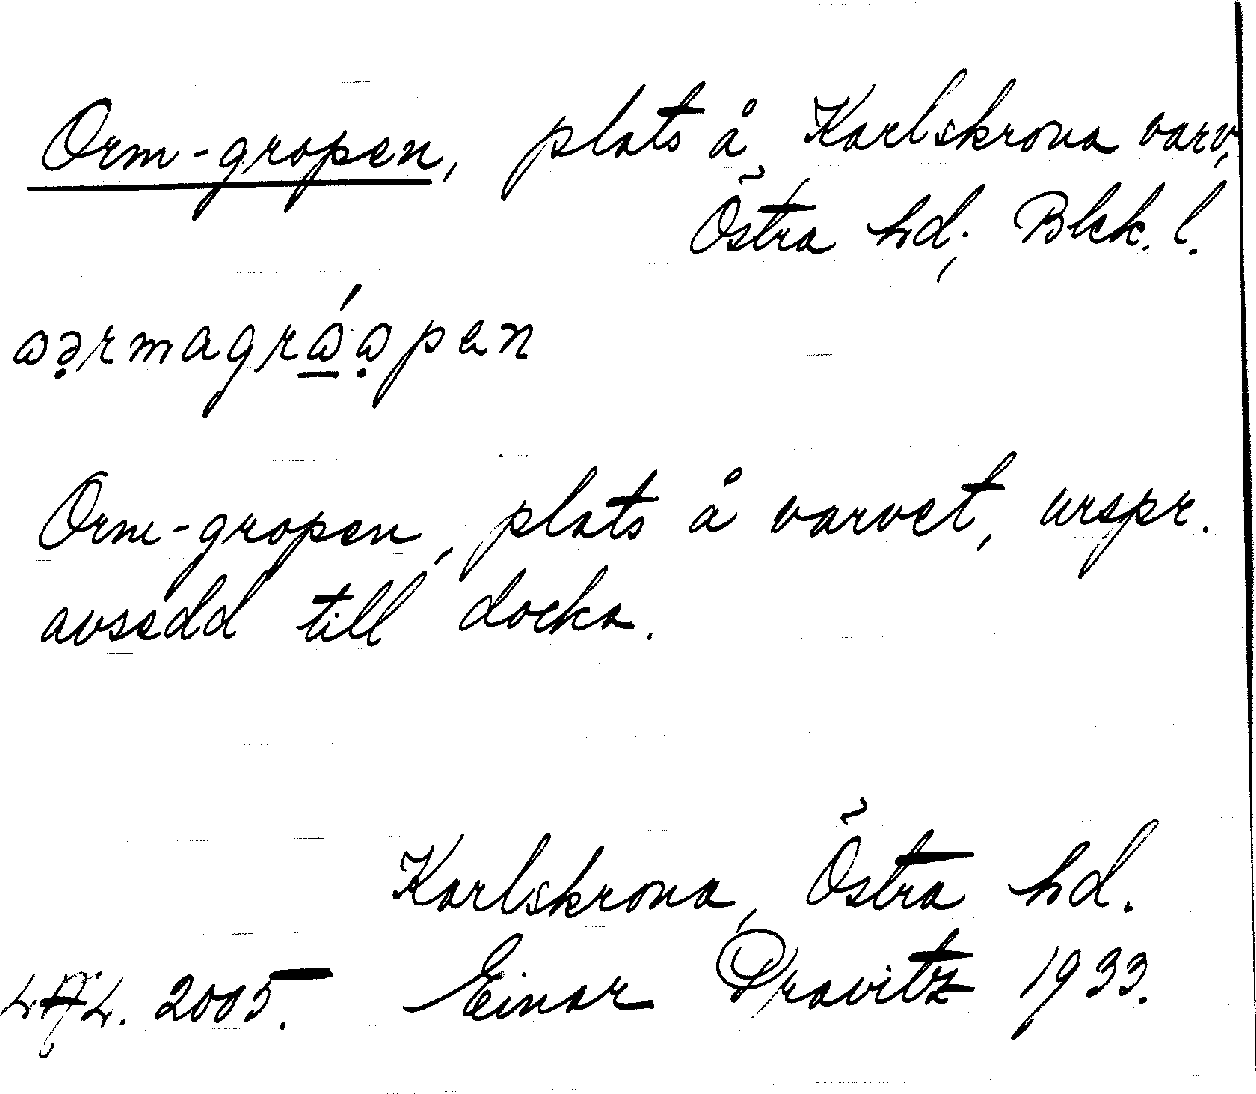 Orm-gropen, plats å Karlskrona varv,
Östra hd; Blek. l.
Orm-gropen, plats å varvet, urspr.
avsedd till docka.
Karlskrona, Östra hd.
2005. Einar Dravitz 1933.